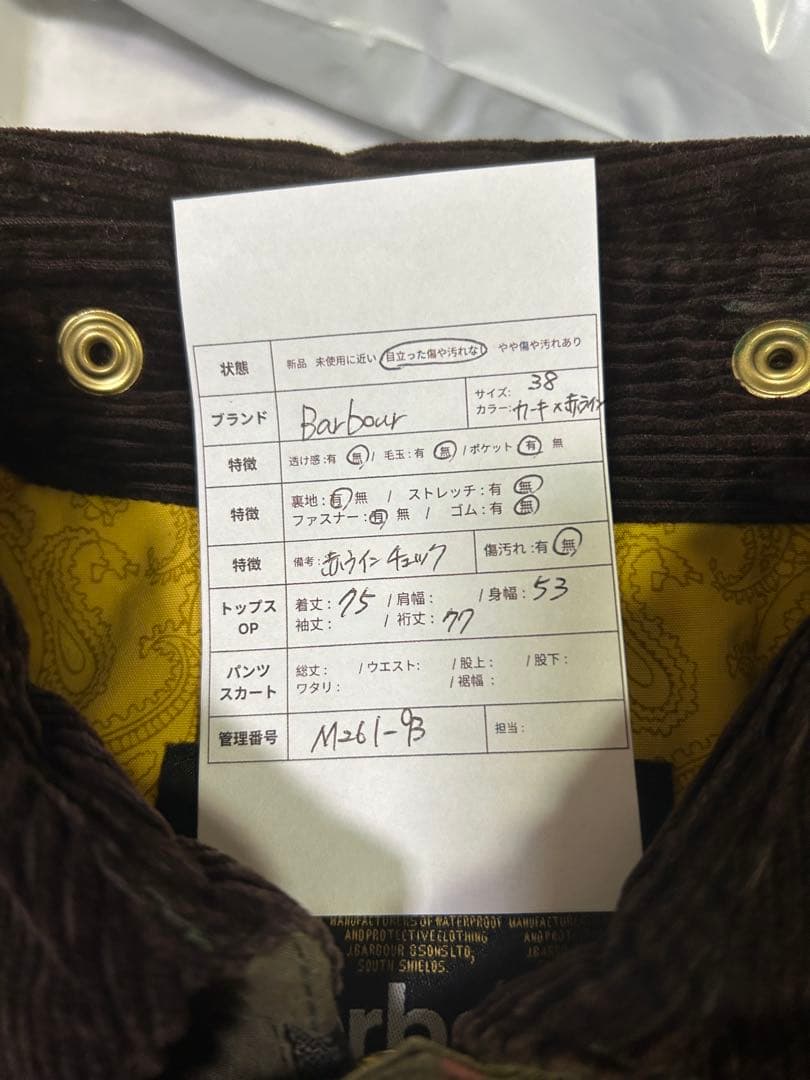 状態 新品 未使用に近い 目立った傷や汚れなし やや傷や汚れあり
ブランド Barbour サイズ: 38
カラー: カーキ×赤ライン
特徴 透け感:有 無 / 毛玉:有 無 / ポケット 有 無
特徴 裏地:有 無 / ストレッチ:有 無
ファスナー:有 無 / ゴム:有 無
特徴 備考:赤ラインチェック 傷汚れ:有 無
トップス OP 着丈: 75 / 肩幅: / 身幅: 53
袖丈: / 裄丈: 77
パンツ スカート 総丈: / ウエスト: / 股上: / 股下:
ワタリ: / 裾幅:
管理番号 M261-93 担当:
MANUFACTURERS OF WATERPROOF MANUFACTURE
AND PROTECTIVE CLOTHING AND PROT
J.BARBOUR & SONS LTD, J.BA
SOUTH SHIELDS.